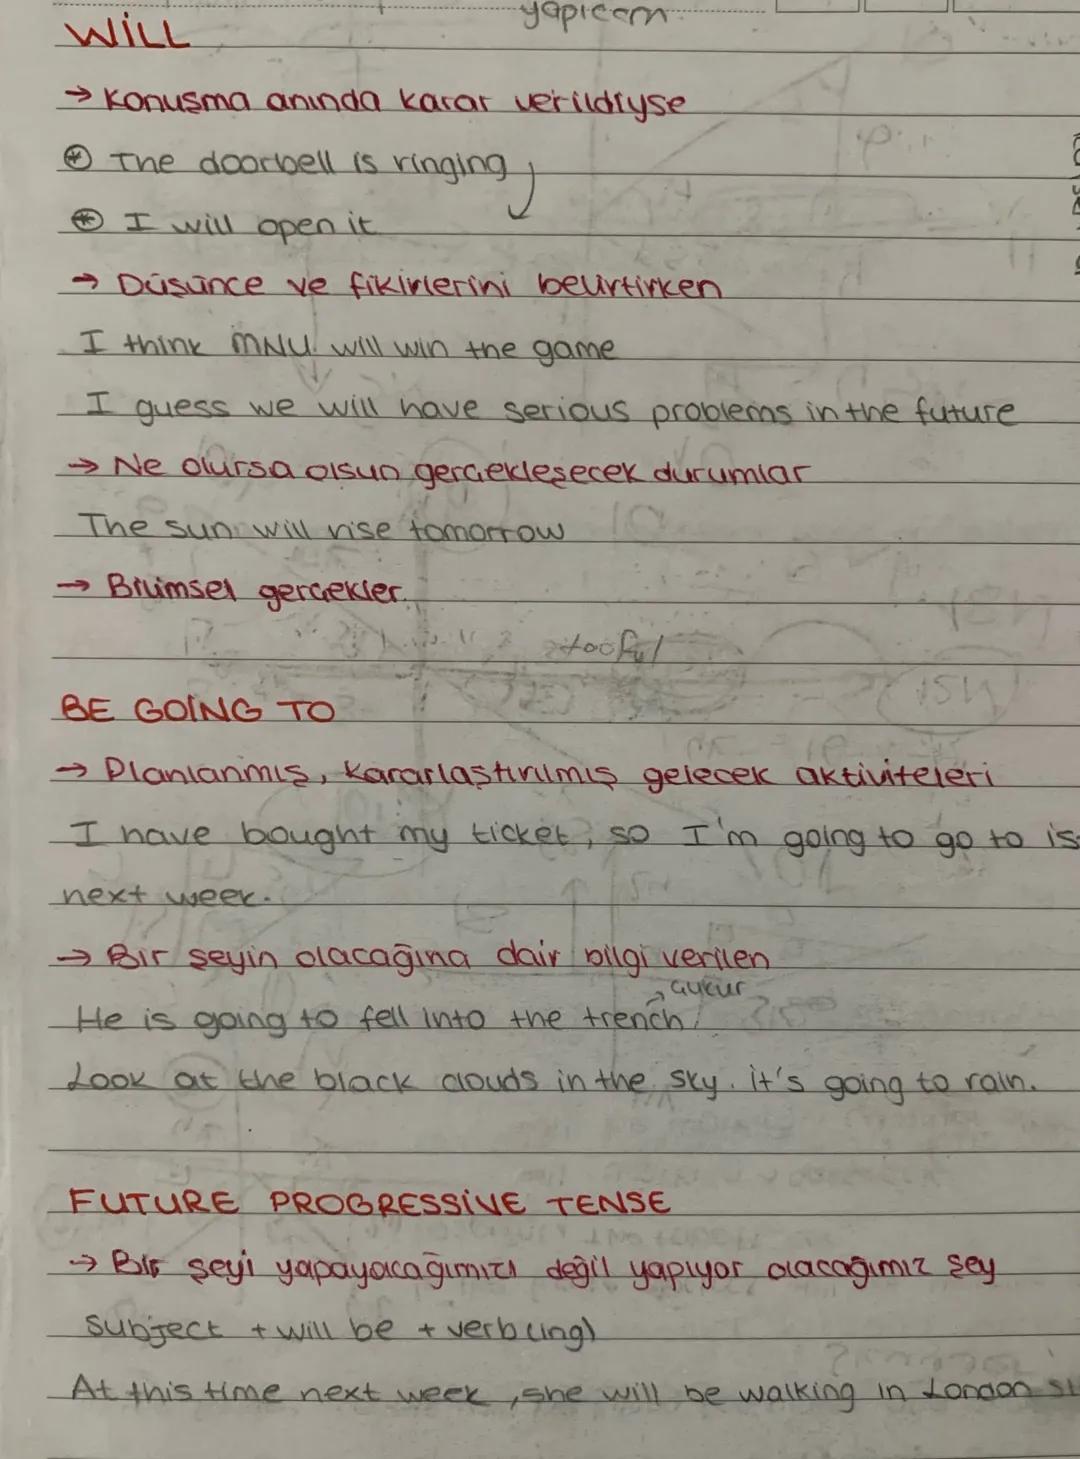 yapıcam
WİLL
→ Konuşma anında karar verildiyse
⊛ The doorbell is ringing
⊛ I will open it
→ Düşünce ve fikirlerini belirtirken
I think MNU will win the game
I guess we will have serious problems in the future
→ Ne olursa olsun gerçekleşecek durumlar
The sun will rise tomorrow
→ Bilimsel gerçekler.
BE GOİNG TO
→ Planlanmış, kararlaştırılmış gelecek aktiviteleri
I have bought my ticket, so I'm going to go to is
next week.
→ Bir şeyin olacağına dair bilgi verilen
→ çukur
He is going to fell into the trench
Look at the black clouds in the sky. it's going to rain.
FUTURE PROGRESSİVE TENSE
→ Bir şeyi yapayacağımızı değil yapıyor olacağımız şey
subject + will be + verb(ing)
At this time next week, she will be walking in London